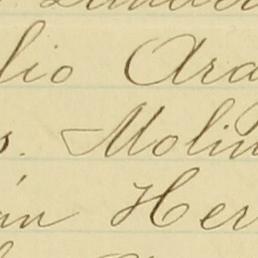 lio Ara
s. Molin
án Her